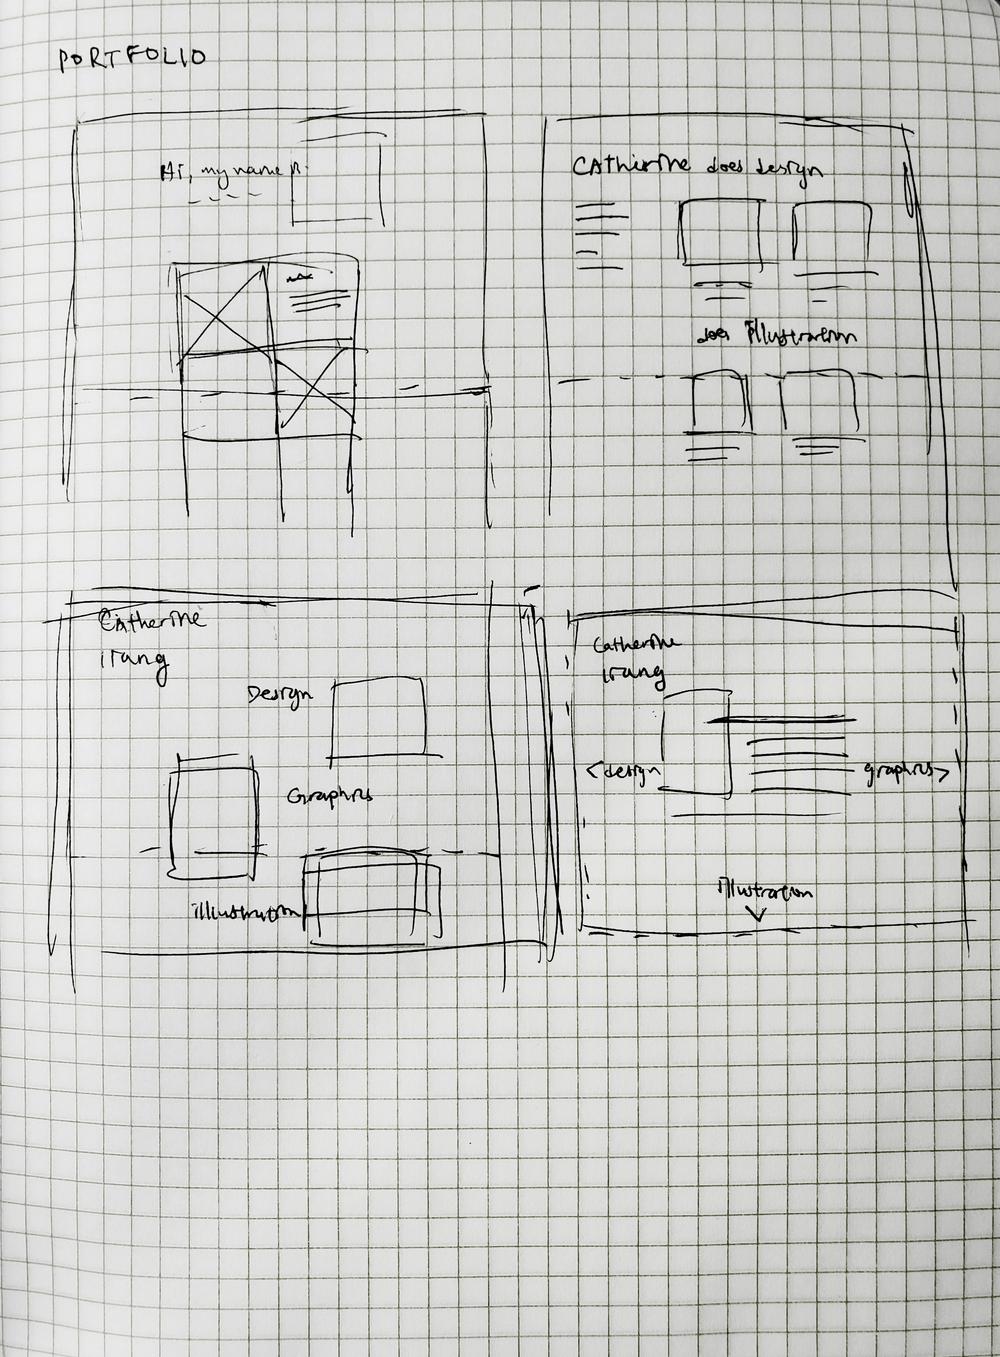 PORTFOLIO
Hi, my name is
CAtherine does design
does illustration
Catherine
irang
Design
Graphics
illustration
Catherine
irang
<design
graphics>
illustration